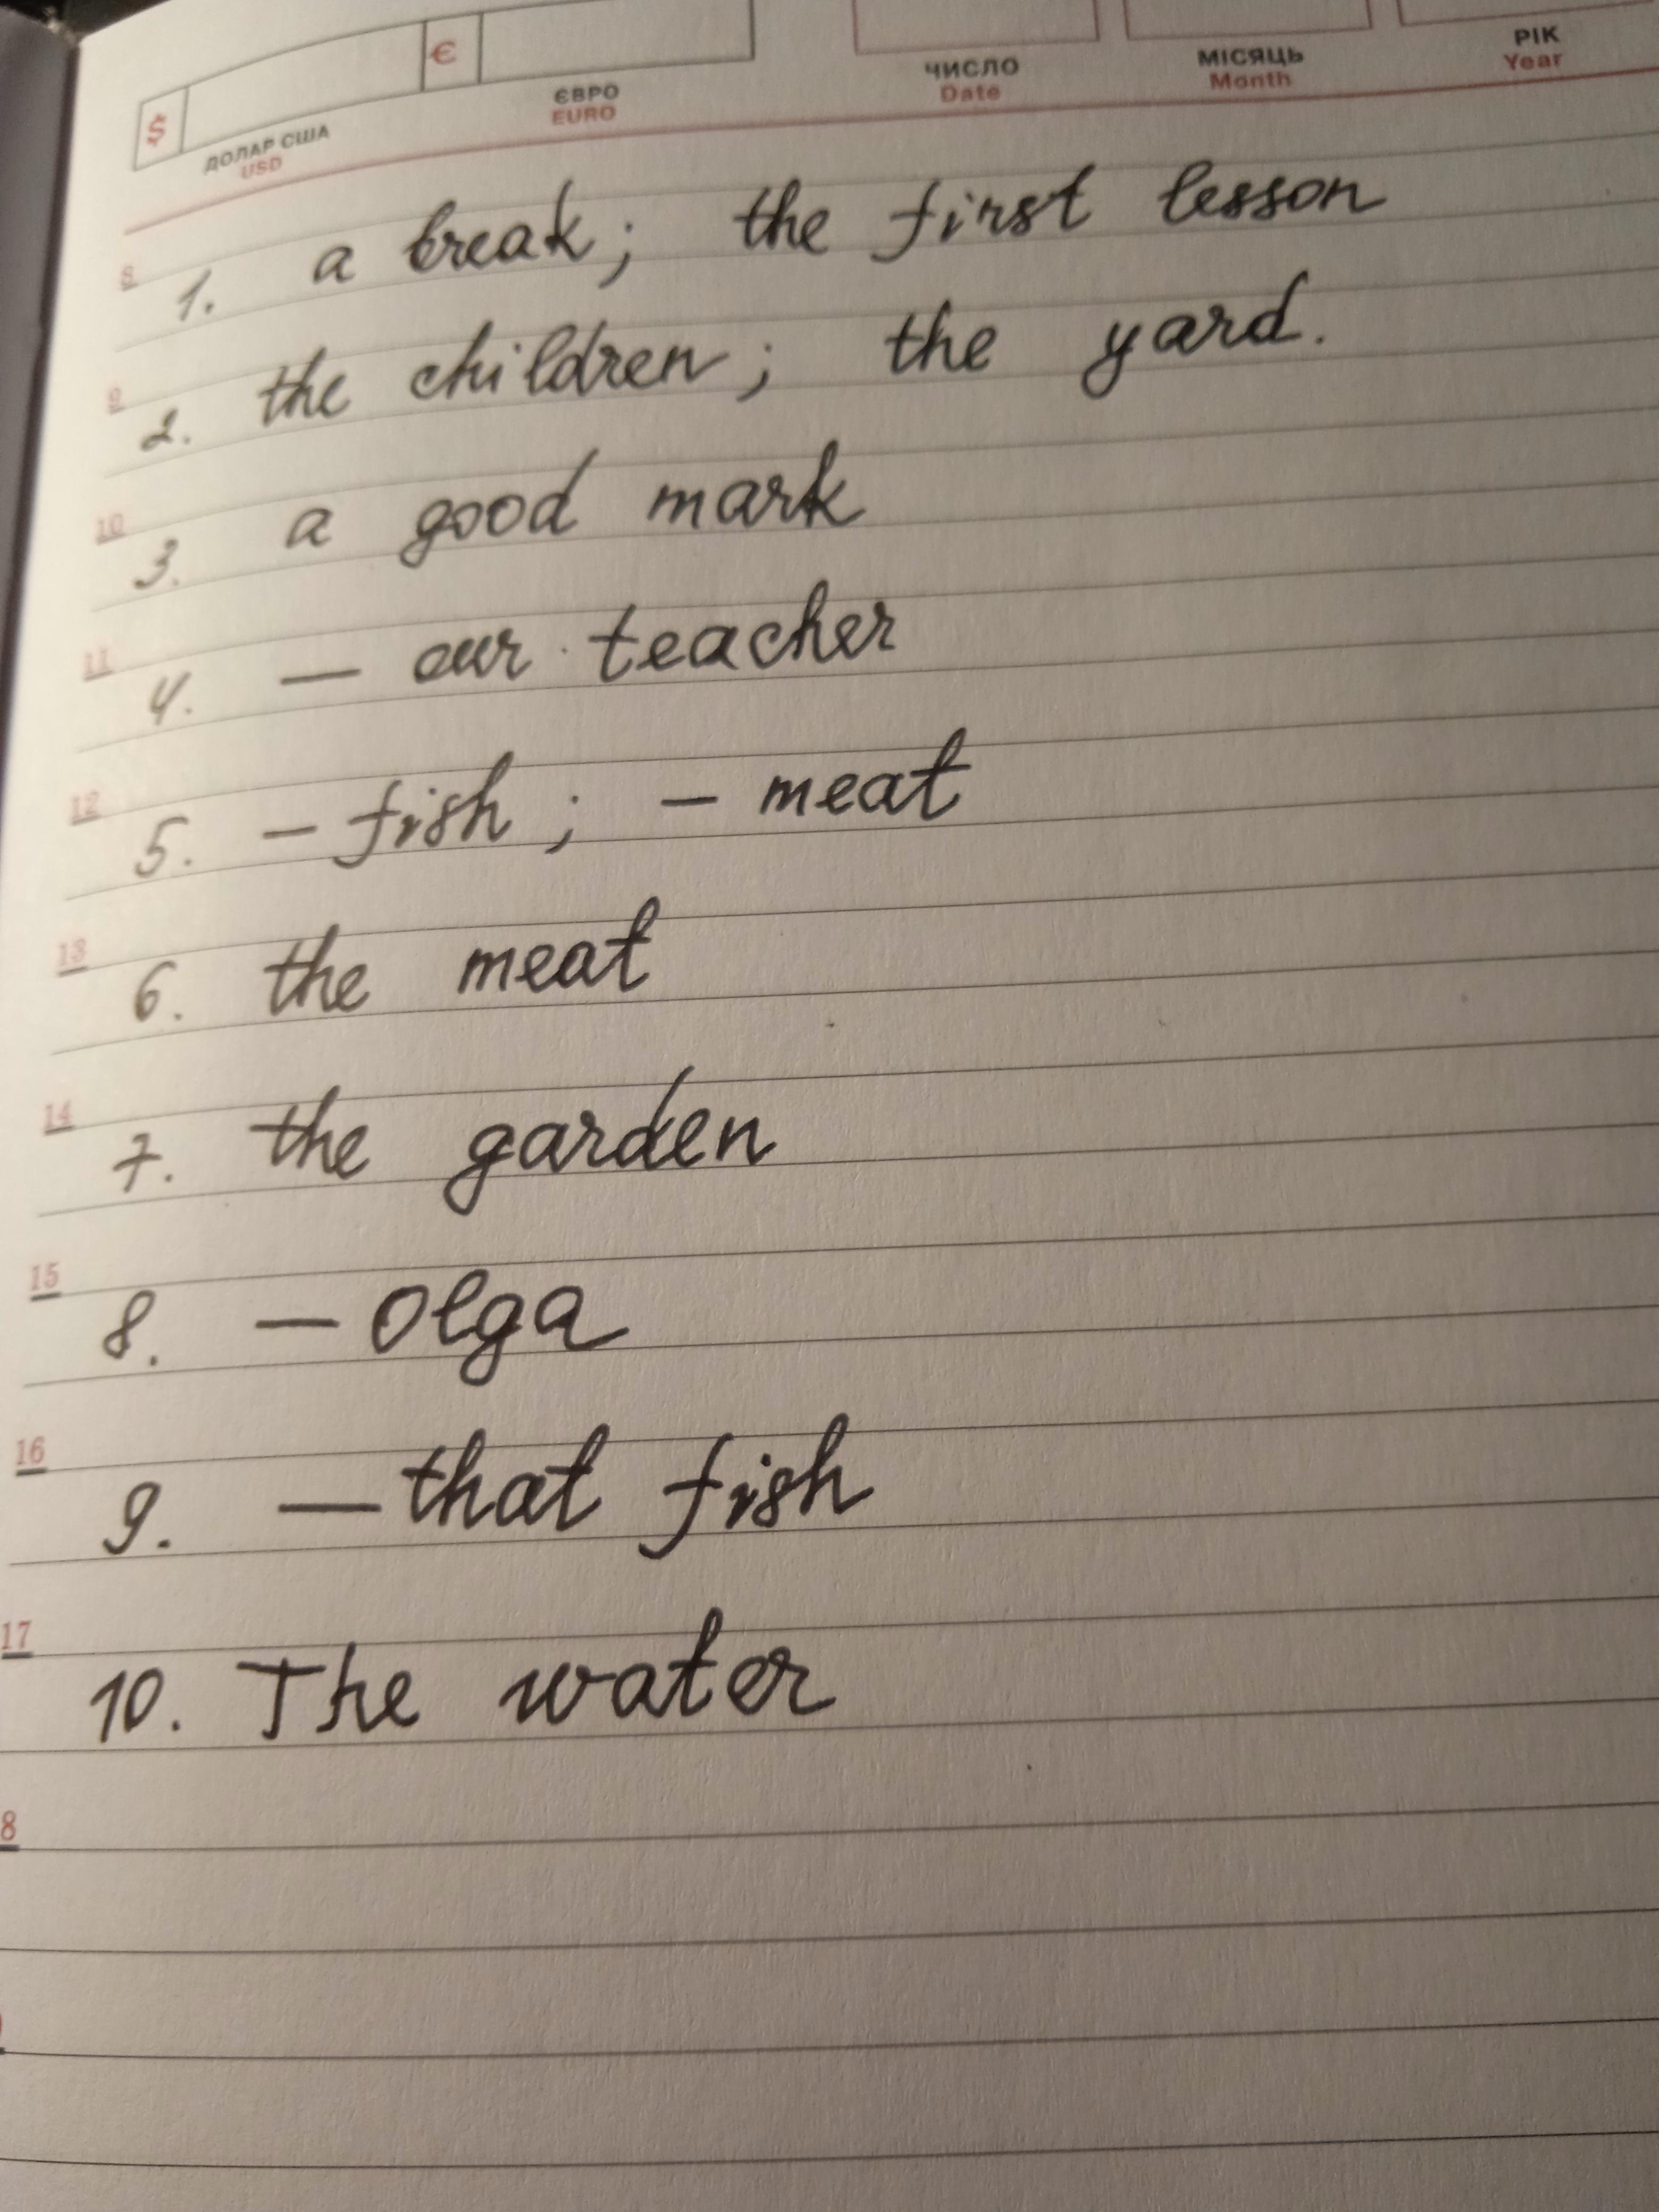 $ € 
ДОЛАР США ЄВРО ЧИСЛО МІСЯЦЬ РІК
USD EURO Date Month Year
8
1. a break; the first lesson
9
2. the children; the yard.
10
3. a good mark
11
4. — our teacher
12
5. – fish ; – meat
13
6. the meat
14
7. the garden
15
8. — Olga
16
9. — that fish
17
10. The water
8